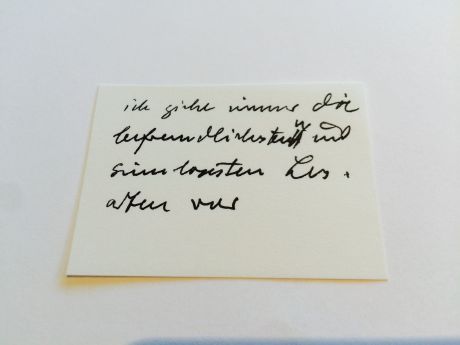 ich ziehe immer die
befremdlichsten und
sinnlosesten Les-
arten vor